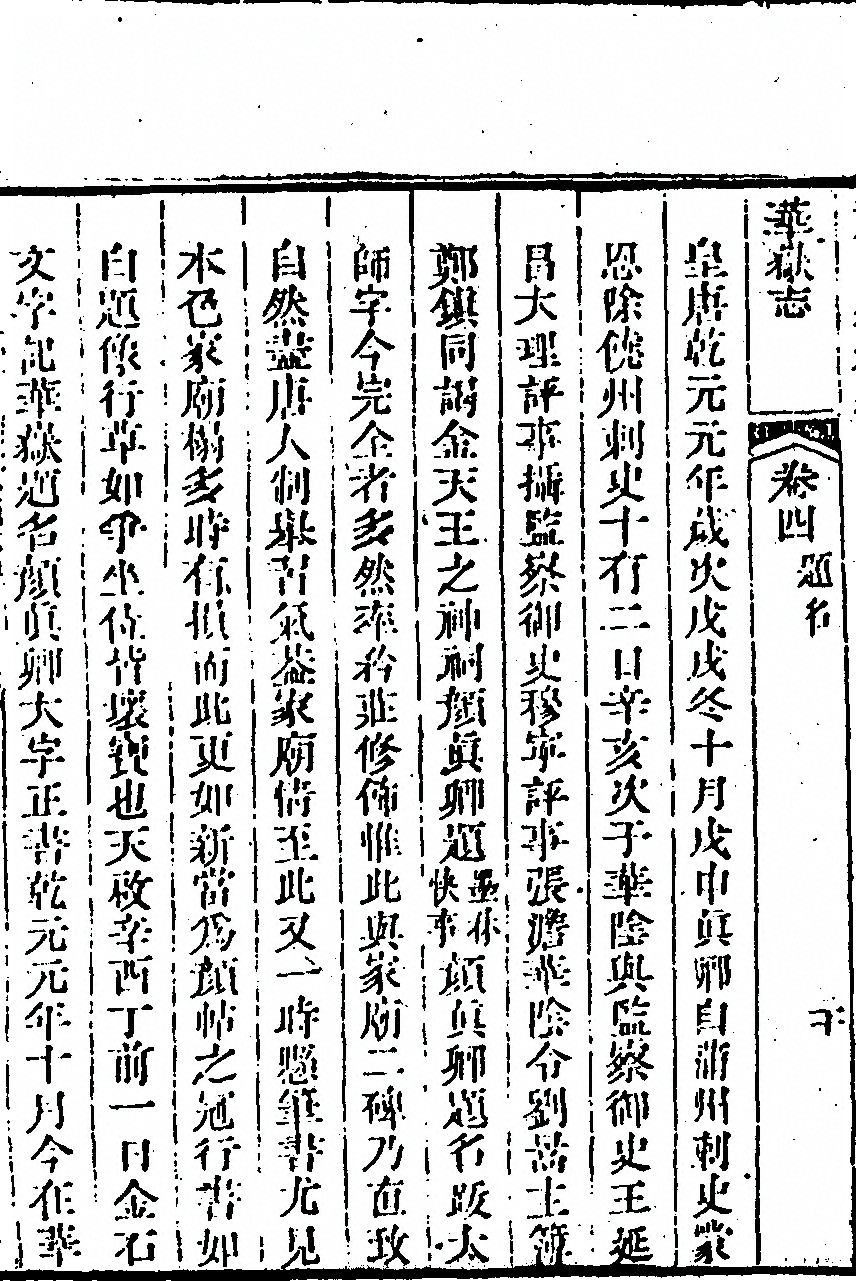 華嶽志
卷四 題名
十
皇唐乾元元年歲次戊戌冬十月戊申眞卿自蒲州刺史蒙
恩除饒州刺史十有二日辛亥次于華陰與監察御史王延
昌大理評事攝監察御史穆寧評事張澹華陰令劉暠主簿
鄭鎭同謁金天王之神祠顏眞卿題 墨林快事 顏眞卿題名跋太
師字今完全者多然率矜莊修佈惟此與家廟二碑乃直攷
自然盡唐人制舉習氣葢家廟倩至此又一時懸筆書尤見
本色家廟榻多時有損而此更如新當為顏帖之冠行書如
自題像行草如爭坐位皆壞甎也天啟辛酉丁前一日金石
文字記華嶽題名顏眞卿大字正書乾元元年十月今在華